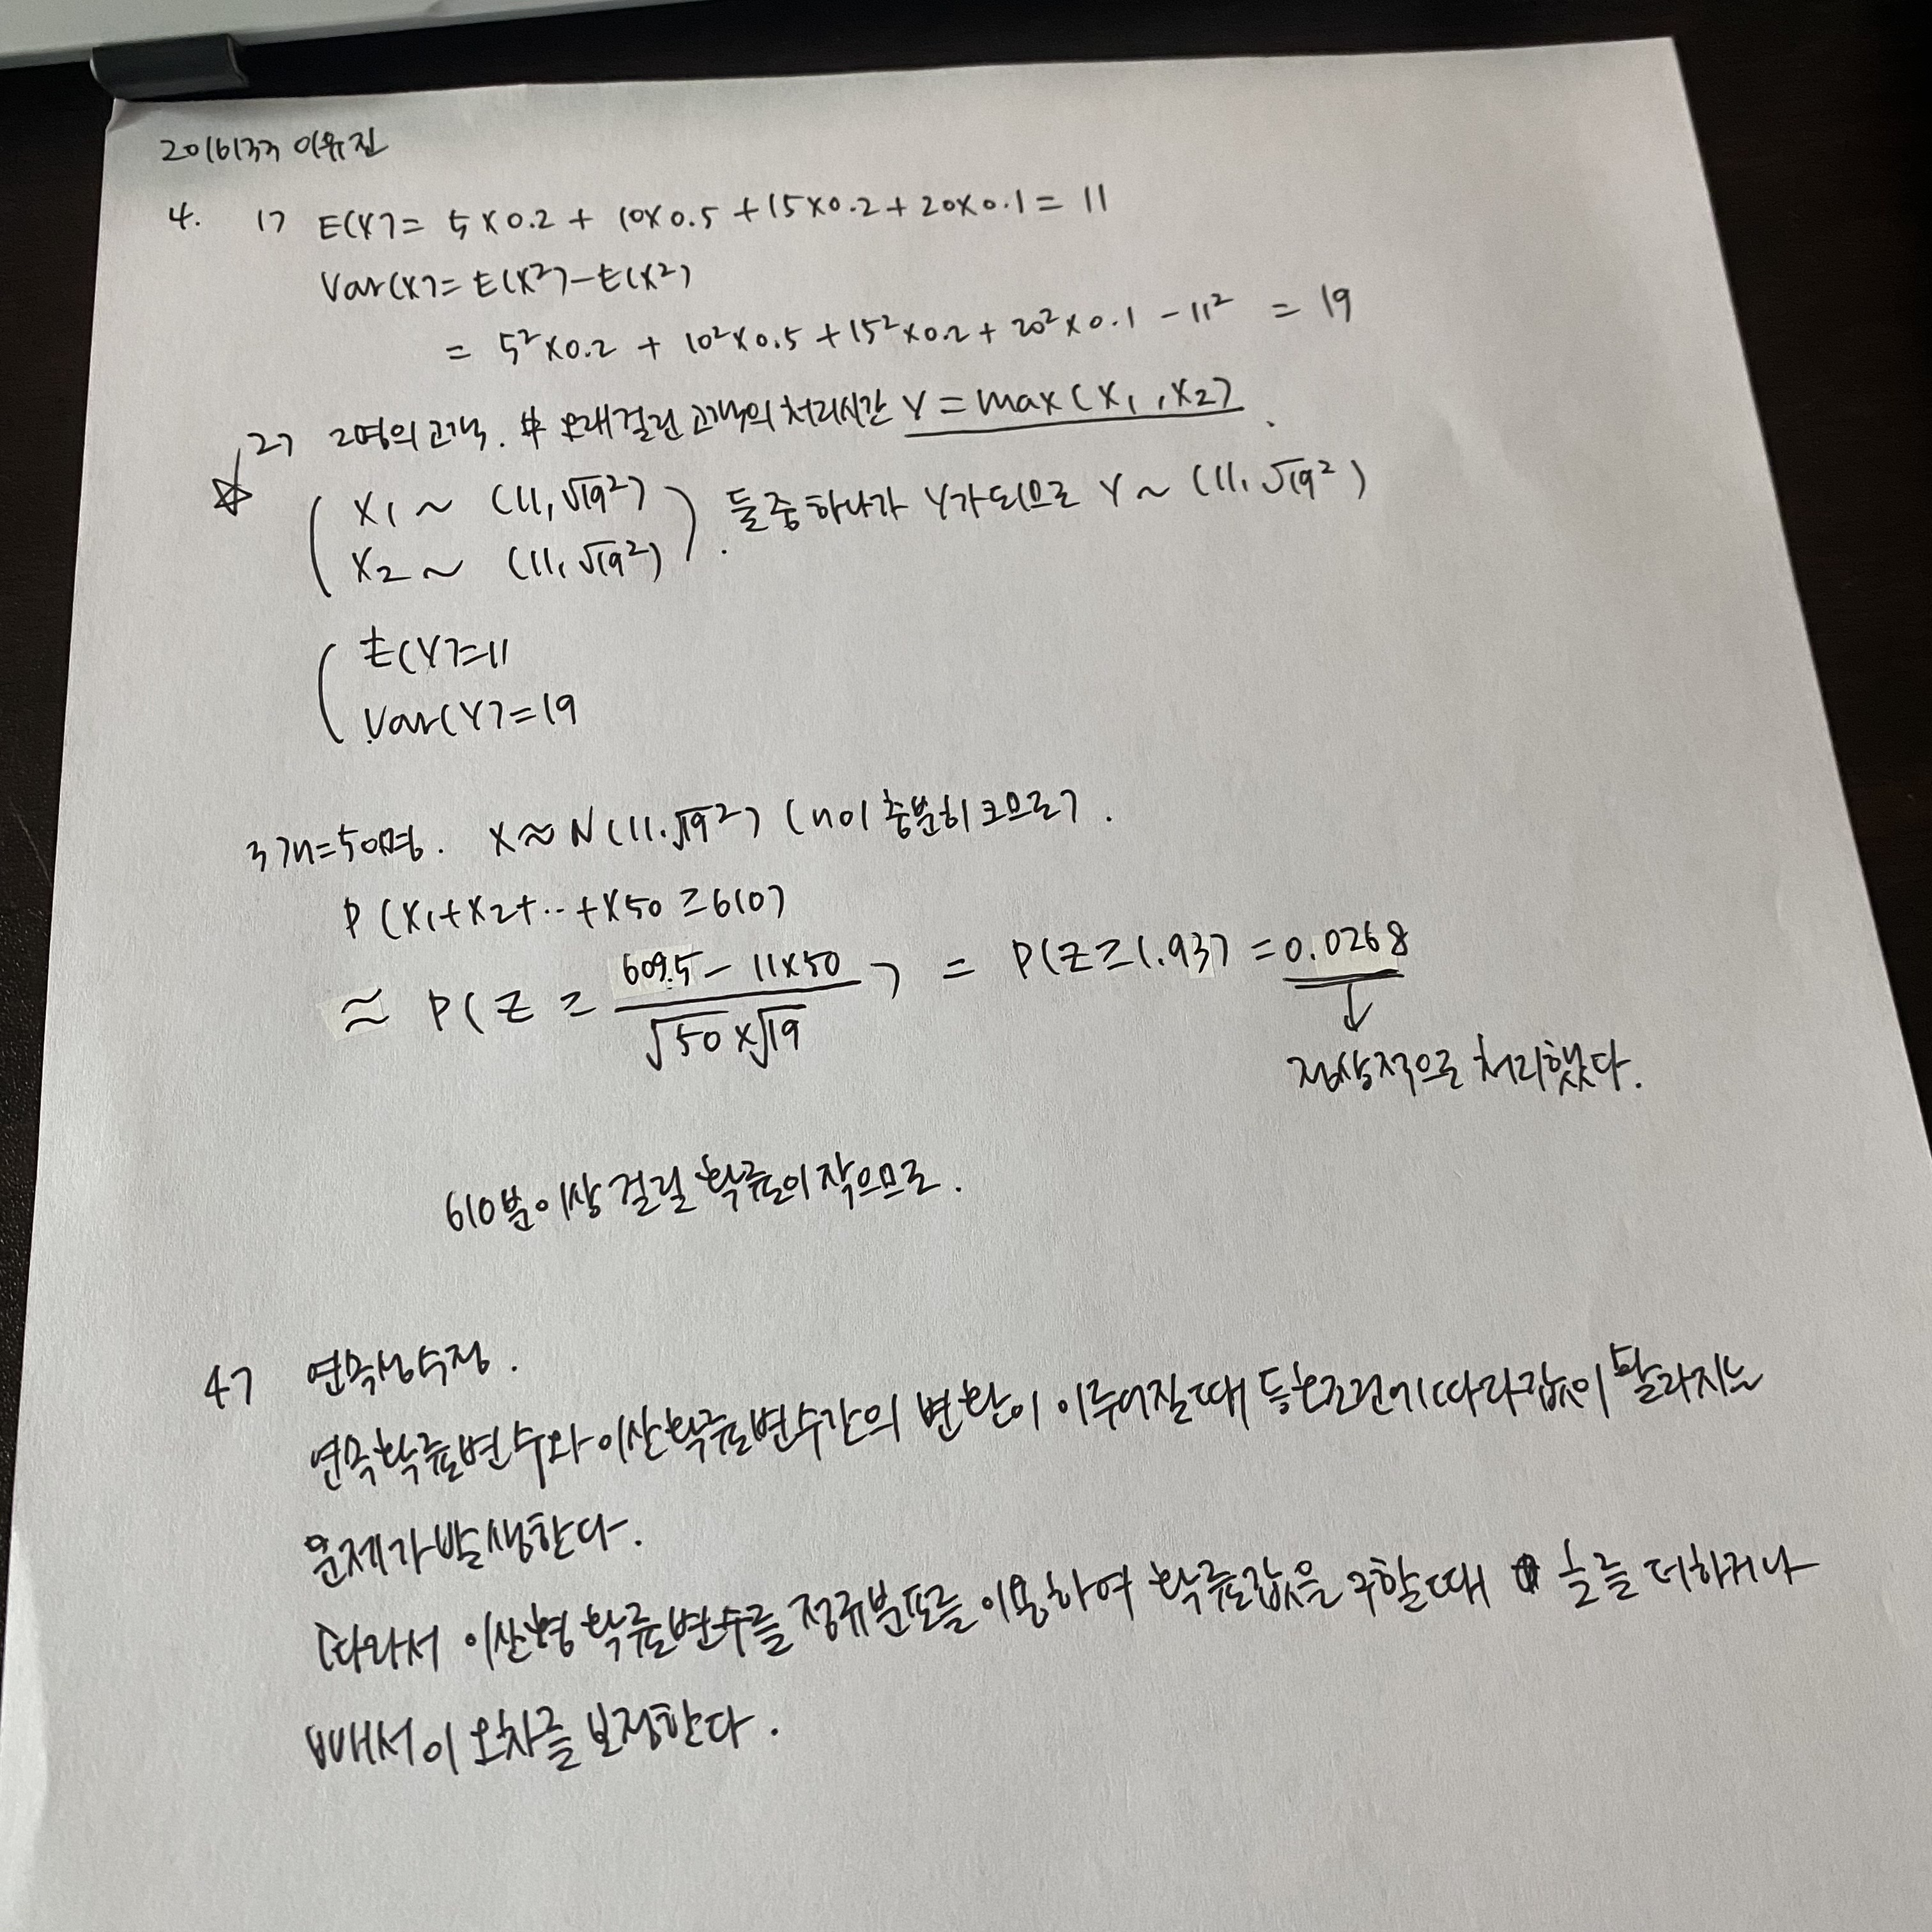 2016133 이유진
4. 1) E(X)= 5×0.2 + 10×0.5 + 15×0.2 + 20×0.1 = 11
Var(X)= E(X²)-E(X²)
= 5²×0.2 + 10²×0.5 + 15²×0.2 + 20²×0.1 - 11² = 19
☆ 2) 2명의 고객. 中 오래걸린 고객의 처리시간 Y = max(X₁, X₂)
X₁ ~ (11, √19²)
X₂ ~ (11, √19²) . 둘중 하나가 Y가 되므로 Y ~ (11, √19²)
E(Y)=11
Var(Y)=19
3) n=50명. X≈N(11, √19²) (n이 충분히 크므로).
P(X₁+X₂+..+X50 ≥610)
≈ P(Z ≥ (609.5 - 11×50)/(√50×√19)) = P(Z≥1.93) = 0.0268
↓
정상적으로 처리했다.
610분이상 걸릴 확률이 작으므로.
4) 연속성수정.
연속확률변수와 이산확률변수간의 변환이 이루어질때 등호조건에 따라 값이 달라지는
문제가 발생한다.
따라서 이산형 확률변수를 정규분포를 이용하여 확률값을 구할때 ½을 더하거나
빼서 이 오차를 보정한다.